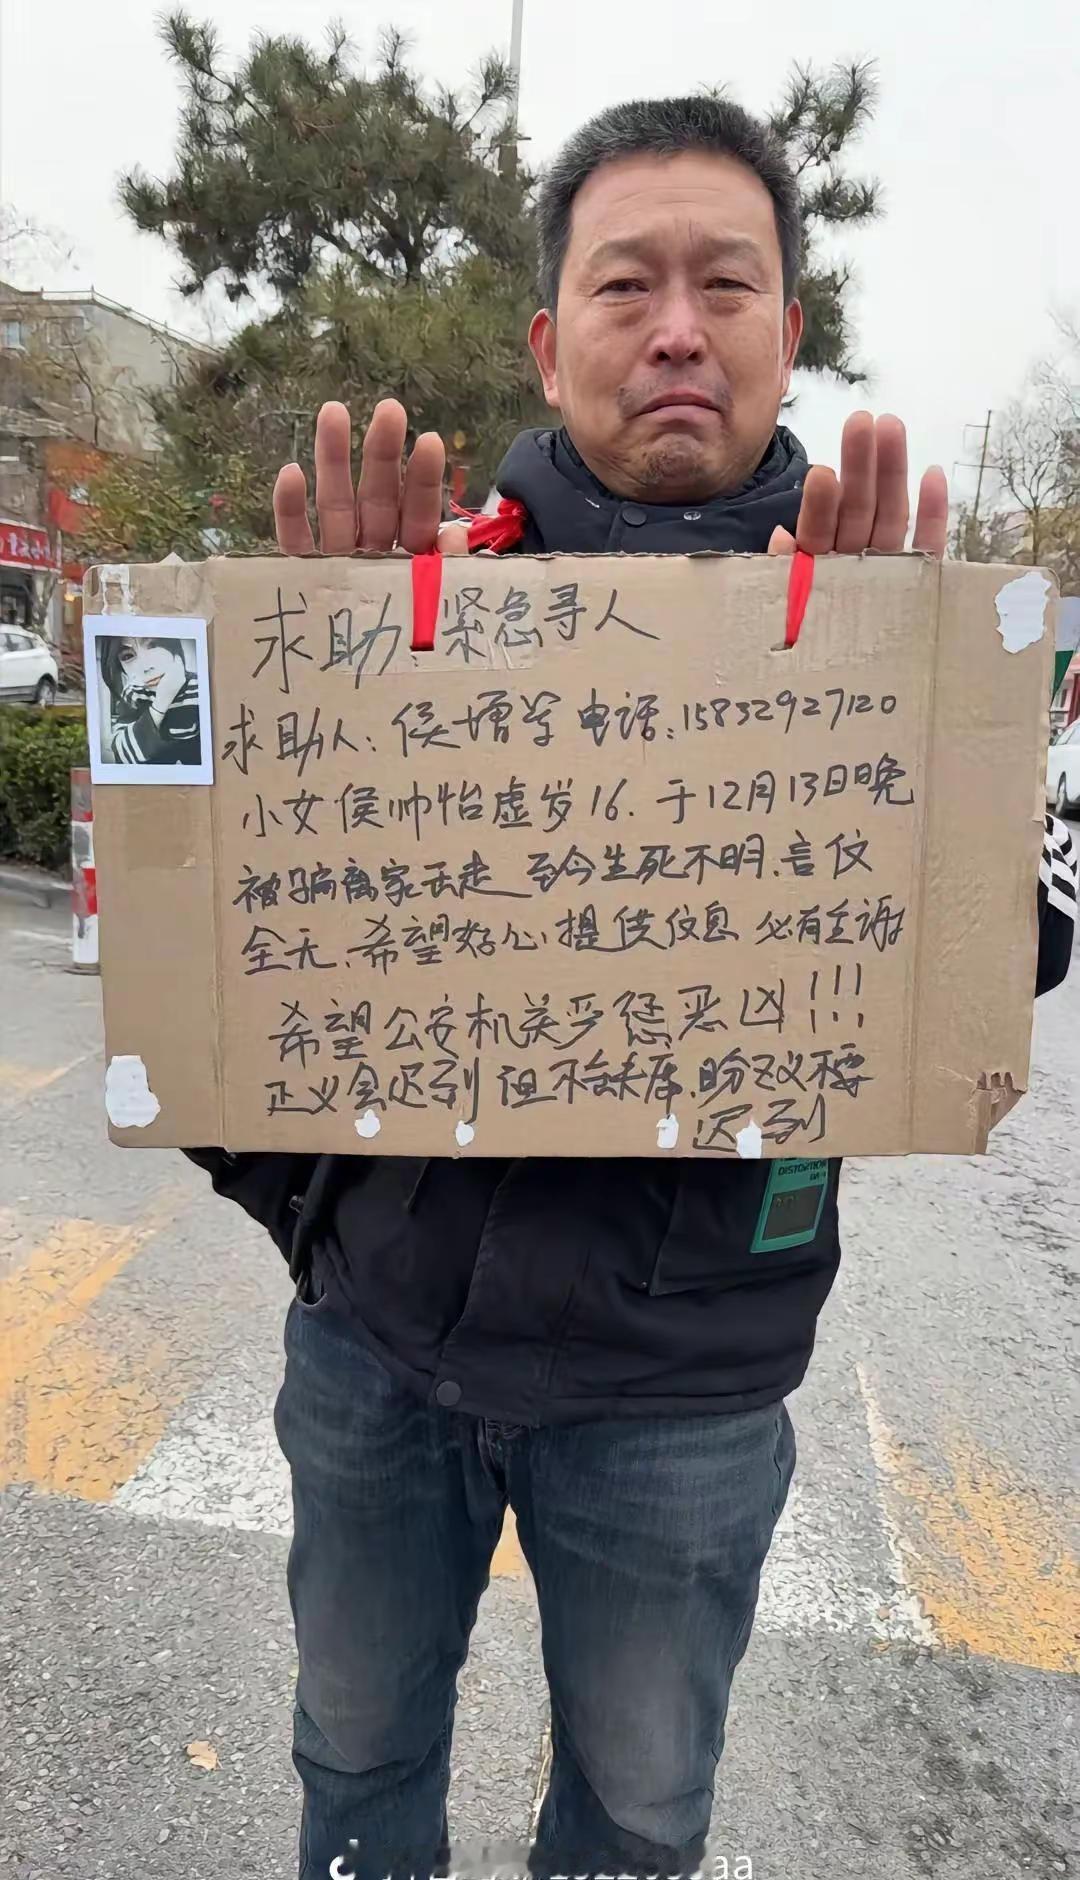 求助:紧急寻人
求助人:侯增学 电话:15832927120
小女侯帅怡虚岁16.于12月13日晚
被骗离家出走 至今生死不明.音信
全无.希望好心提供信息 必有重谢
希望公安机关严惩恶凶!!!
正义会迟到 但不会缺席.盼正义不要
迟到
DISTORTION